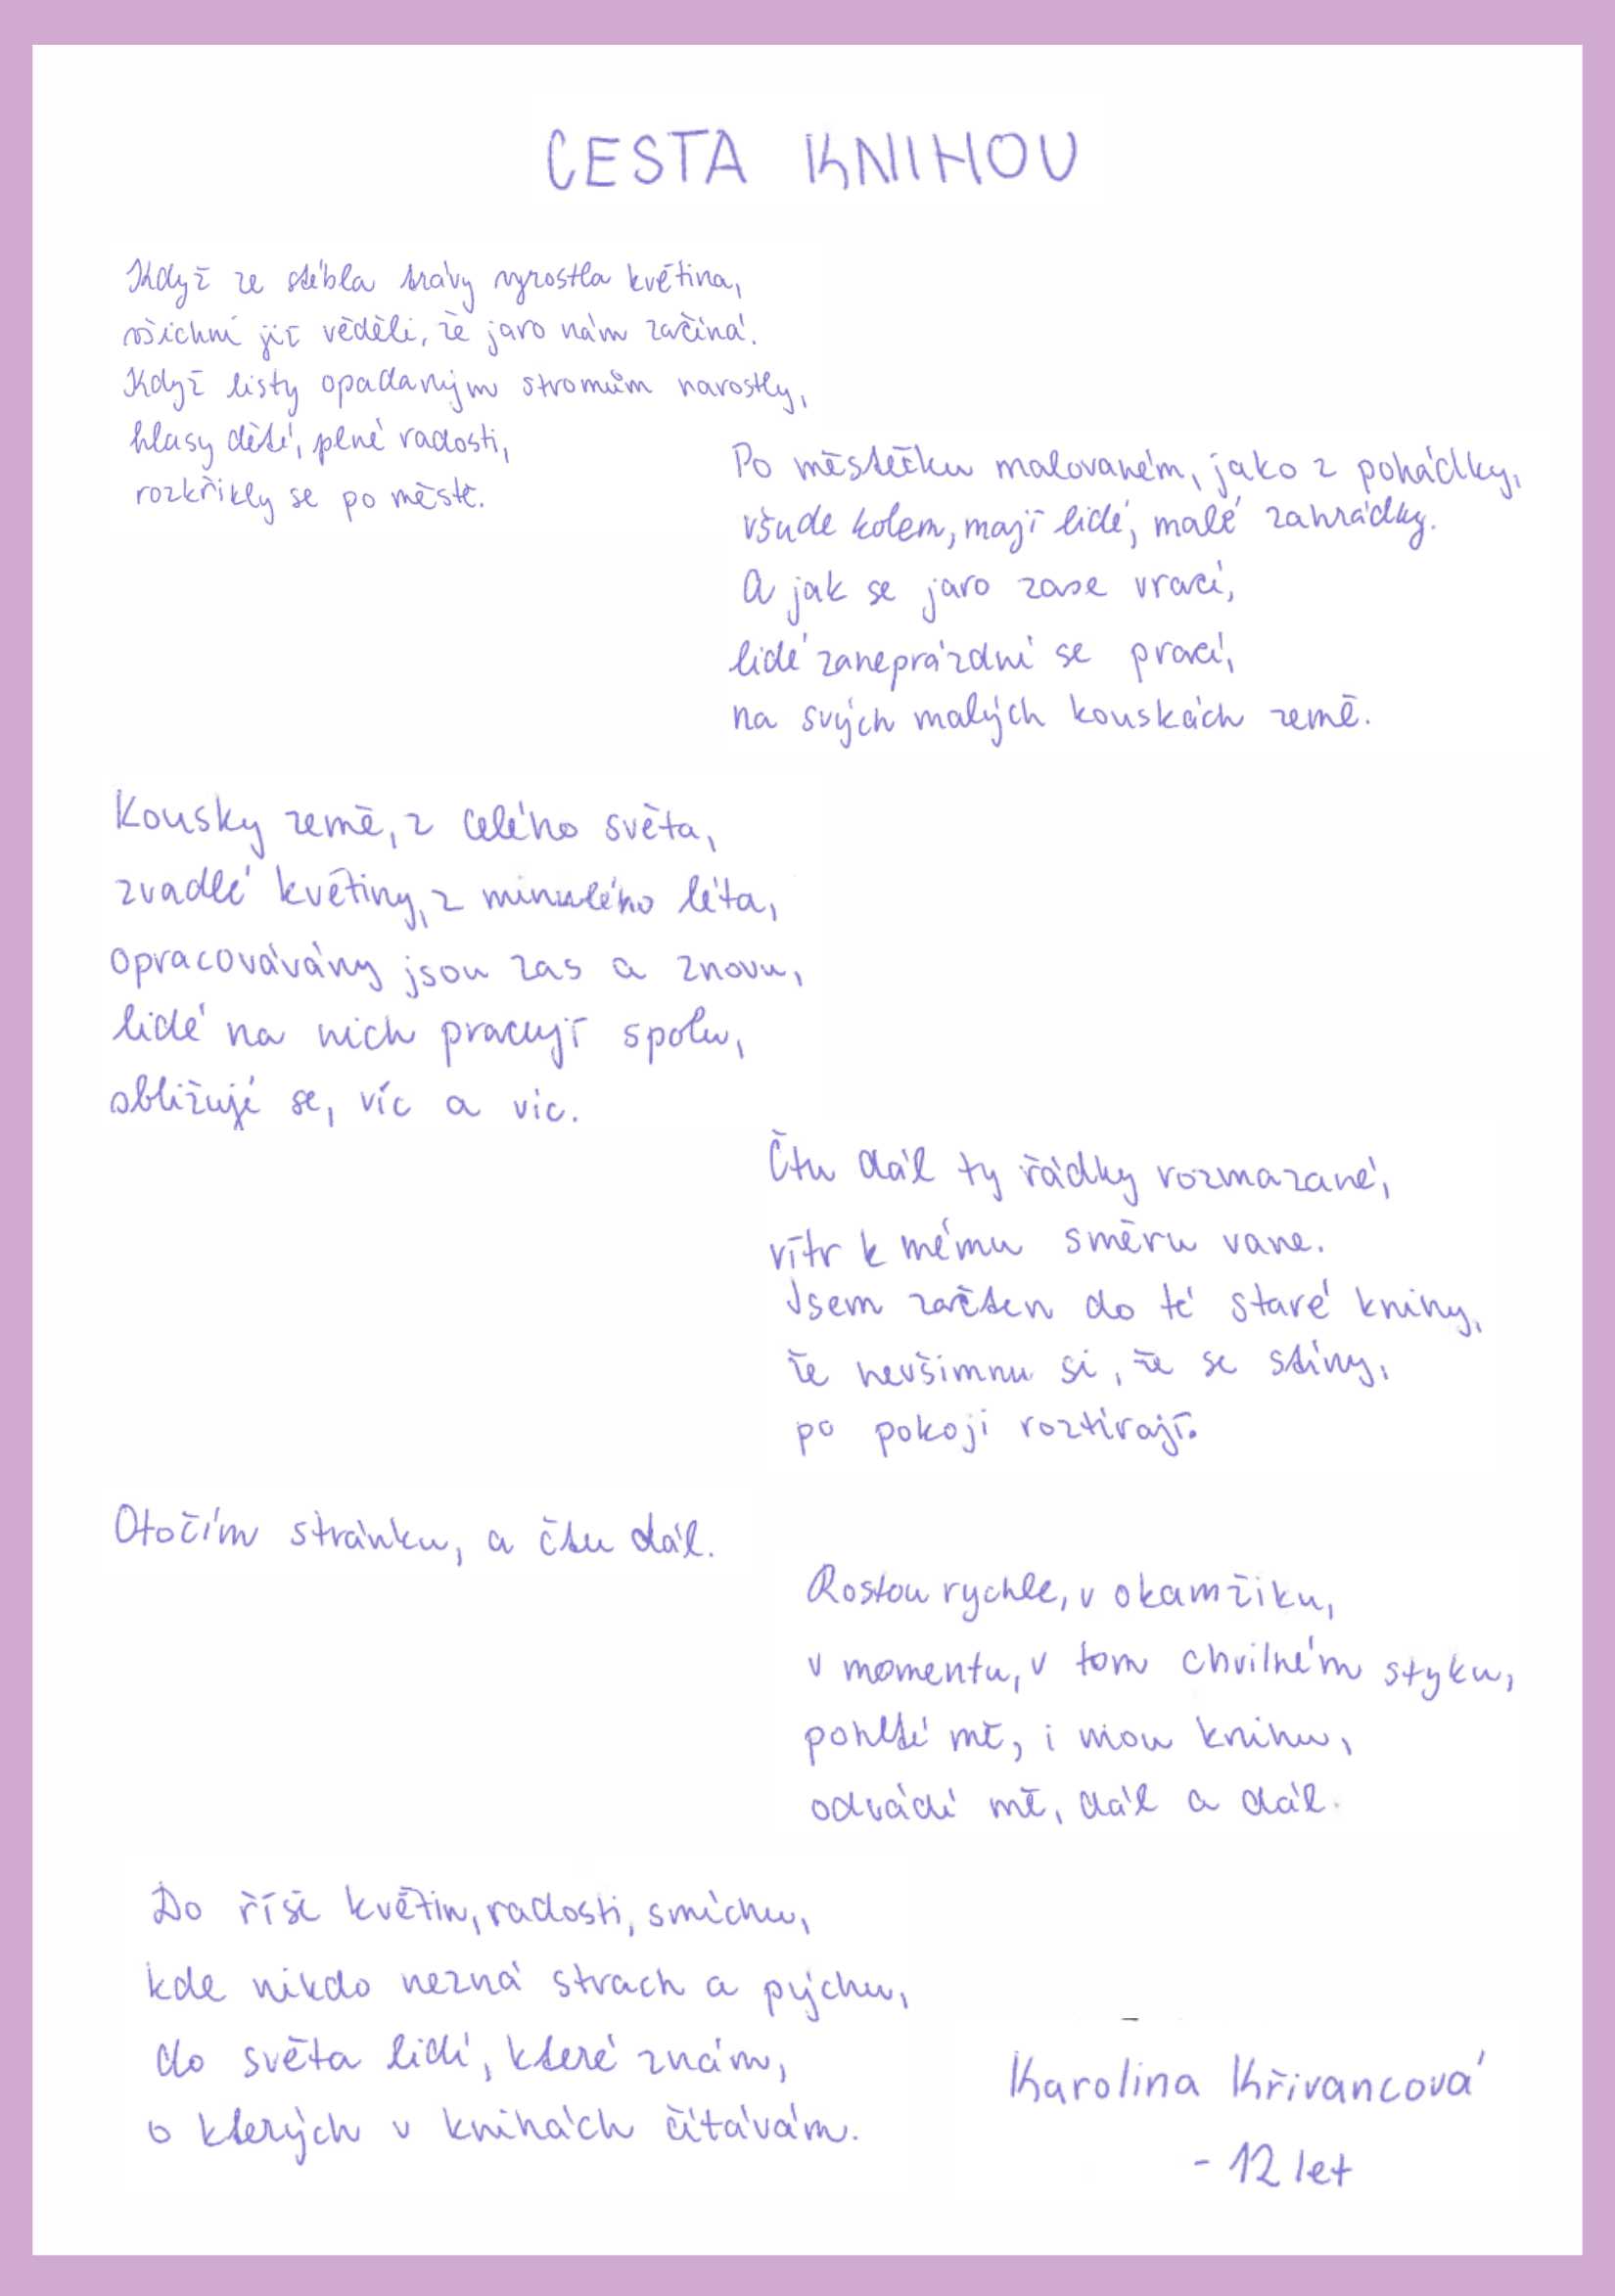 CESTA KNIHOU
Když ze stébla trávy vyrostla květina,
všichni již věděli, že jaro nám začíná.
Když listy opadaným stromům narostly,
hlasy dětí, plné radosti,
rozkřikly se po městě.
Po městečku malovaném, jako z pohádky,
všude kolem, mají lidé, malé zahrádky.
A jak se jaro zase vrací,
lidé zaneprázdní se prací,
na svých malých kouskách země.
Kousky země, z celého světa,
zvadlé květiny, z minulého léta,
opracovávány jsou zas a znovu,
lidé na nich pracují spolu,
sbližují se, víc a víc.
Čtu dál ty řádky rozmazané,
vítr k mému směru vane.
Jsem začten do té staré knihy,
že nevšimnu si, že se stíny,
po pokoji roztírají.
Otočím stránku, a čtu dál.
Rostou rychle, v okamžiku,
v momentu, v tom chvilném styku,
pohltí mě, i mou knihu,
odvádí mě, dál a dál.
Do říše květin, radosti, smíchu,
kde nikdo nezná strach a pýchu,
do světa lidí, které znám,
o kterých v knihách čítávám.
Karolina Křivancová
- 12 let